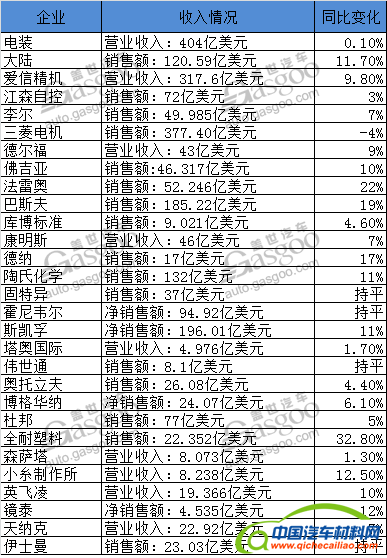 企业 收入情况 同比变化
电装 营业收入：404亿美元 0.10%
大陆 销售额：120.59亿美元 11.70%
爱信精机 营业收入：317.6亿美元 9.80%
江森自控 销售额：72亿美元 3%
李尔 销售额：49.985亿美元 7%
三菱电机 销售额：377.40亿美元 -4%
德尔福 营业收入：43亿美元 9%
佛吉亚 销售额:46.317亿美元 10%
法雷奥 销售额：52.246亿美元 22%
巴斯夫 销售额：185.22亿美元 19%
库博标准 销售额：9.021亿美元 4.60%
康明斯 营业收入：46亿美元 7%
德纳 销售额：17亿美元 17%
陶氏化学 销售额：132亿美元 11%
固特异 销售额：37亿美元 持平
霍尼韦尔 净销售额：94.92亿美元 持平
斯凯孚 净销售额：196.01亿美元 11%
塔奥国际 营业收入：4.976亿美元 1.70%
伟世通 销售额：8.1亿美元 持平
奥托立夫 销售额：26.08亿美元 4.40%
博格华纳 净销售额：24.07亿美元 6.10%
杜邦 销售额：77亿美元 5%
全耐塑料 销售额：22.352亿美元 32.80%
森萨塔 营业收入：8.073亿美元 1.30%
小糸制作所 销售额：8.238亿美元 12.50%
英飞凌 销售额：19.366亿美元 10%
镜泰 净销售额：4.535亿美元 12%
天纳克 营业收入：22.92亿美元
伊士曼 销售额：23.03亿美元 持平
盖世汽车网
Gasgoo
auto.gasgoo.com
中国汽车材料网
www.qichecailiao.com